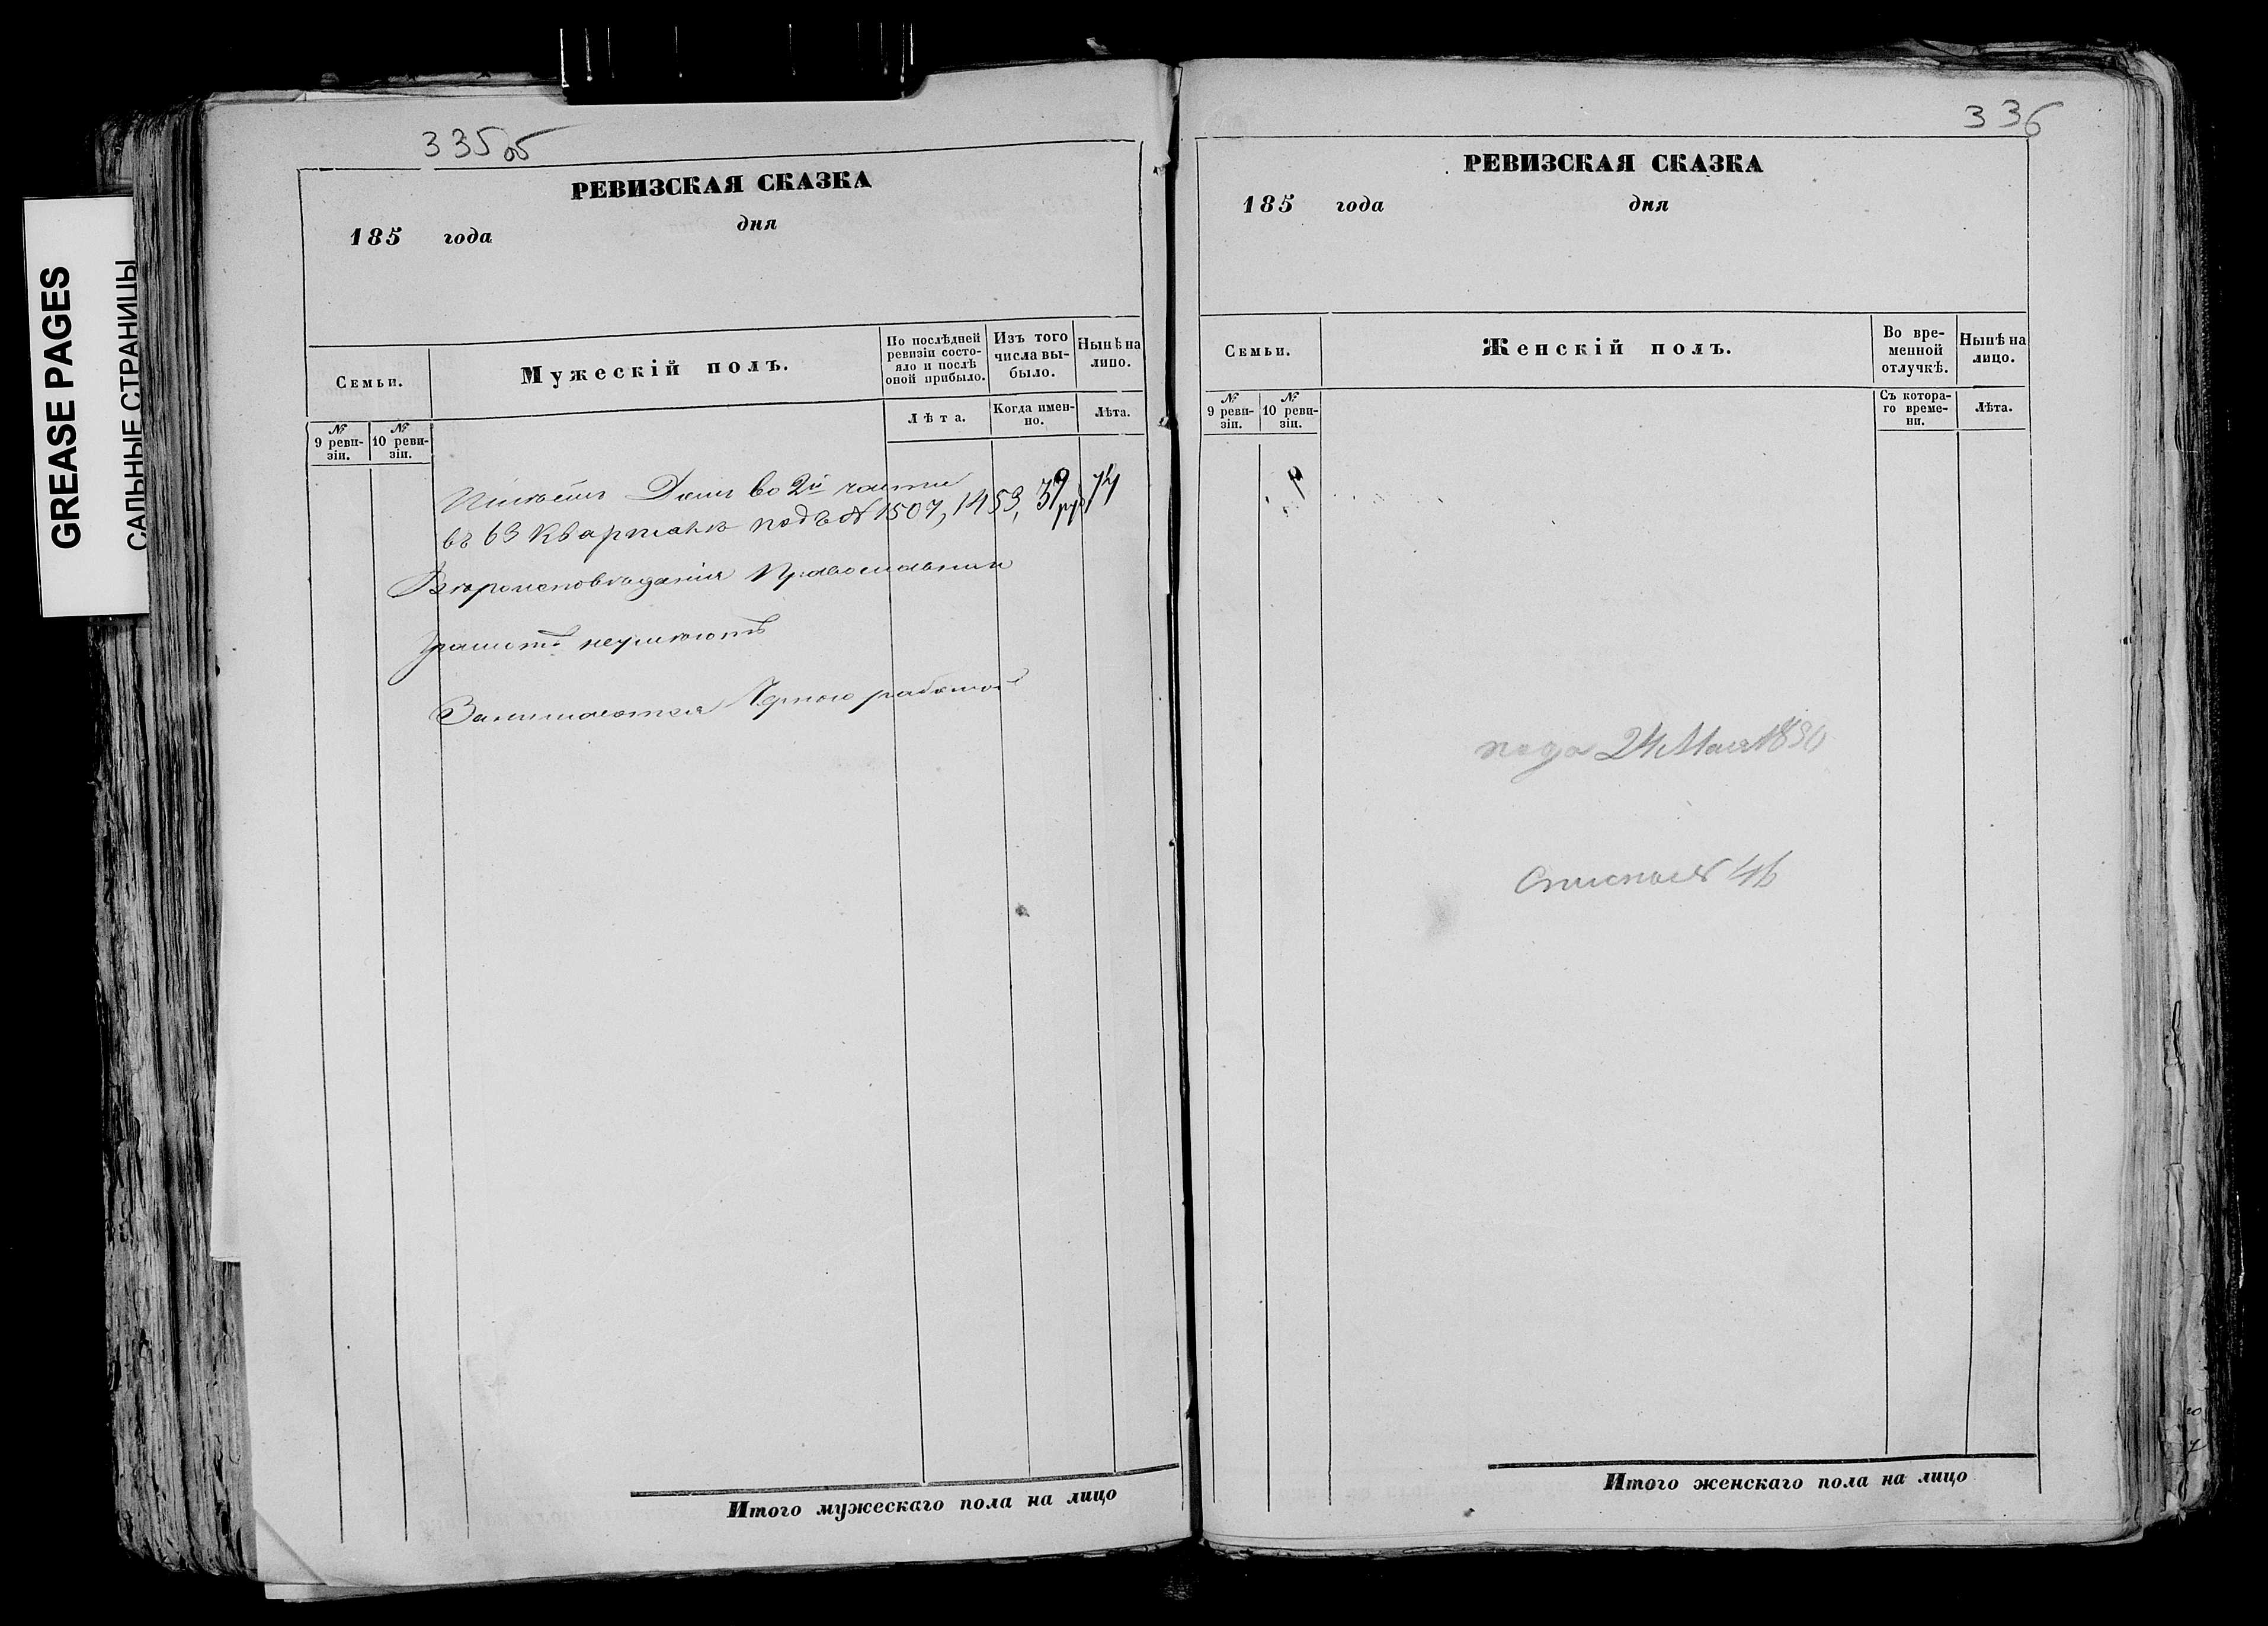 GREASE PAGES
САЛЬНЫЕ СТРАНИЦЫ
335 об
РЕВИЗСКАЯ СКАЗКА
185 года дня
Семьи.
Мужескій полъ.
По послѣдней ревизіи состояло и послѣ оной прибыло.
Изъ того числа выбыло.
Нынѣ на лицо.
№ 9 ревизіи.
№ 10 ревизіи.
Лѣта.
Когда именно.
Лѣта.
Имѣетъ Домъ во 2й части
въ 63 Кварталѣ подъ № 1507, 1453, 39 74
Вѣроисповѣданія Православнаго
Грамотѣ неумѣютъ
Занимаются Черною работой
Итого мужескаго пола на лицо
336
РЕВИЗСКАЯ СКАЗКА
185 года дня
Семьи.
Женскій полъ.
Во временной отлучкѣ.
Нынѣ на лицо.
№ 9 ревизіи.
№ 10 ревизіи.
Съ котораго времени.
Лѣта.
24 Мая 1850
46
Итого женскаго пола на лицо